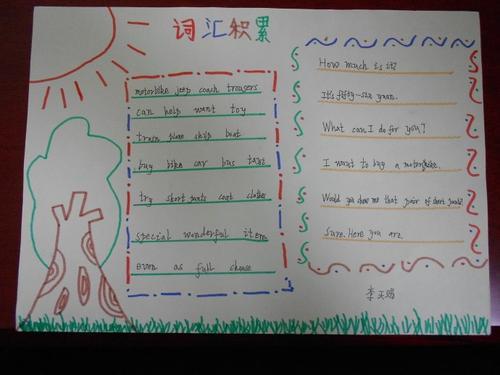 词汇积累
motorbike jeep coach trousers
can help want toy
train plane ship boat
buy bike car bus taxi
try short pants coat clothes
special wonderful item
even as full choose
How much is it?
It's fifty-six yuan.
What can I do for you?
I want to buy a motorbike.
Would you show me that pair of short pants?
Sure. Here you are.
李天